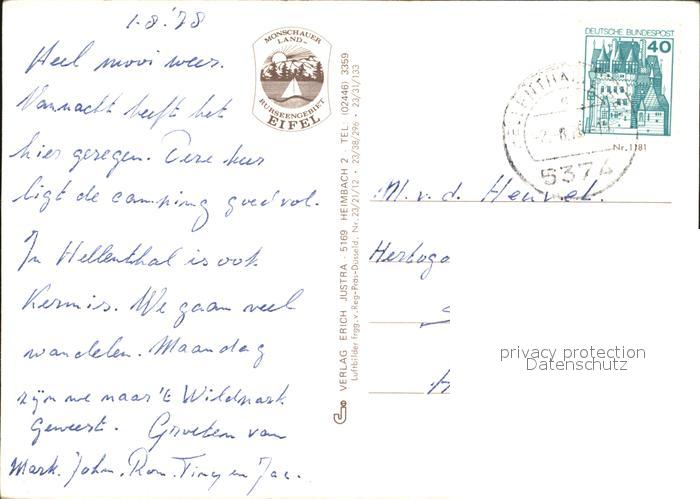 1-8-'78
Heel mooi weer.
Vannacht heeft het
hier geregen. Deze keer
ligt de camping goed vol.
In Hellenthal is ook
Kermis. We gaan veel
wandelen. Maandag
zijn we naar 't Wildpark
geweest. Groeten van
Mark. John. Ron. Tiny en Jac.
MONSCHAUER
LAND
RURSEENGEBIET
EIFEL
VERLAG ERICH JUSTRA · 5169 HEIMBACH 2 · TEL. (02446) 3359
Luftbilder frgg. v. Reg-Präs-Düsseld. Nr. 23/21/12 · 23/38/296 · 23/31/133
DEUTSCHE BUNDESPOST
40
HELLENTHAL
5374
Nr. 1181
M. v. d. Heuvel.
Hertogo
privacy protection
Datenschutz